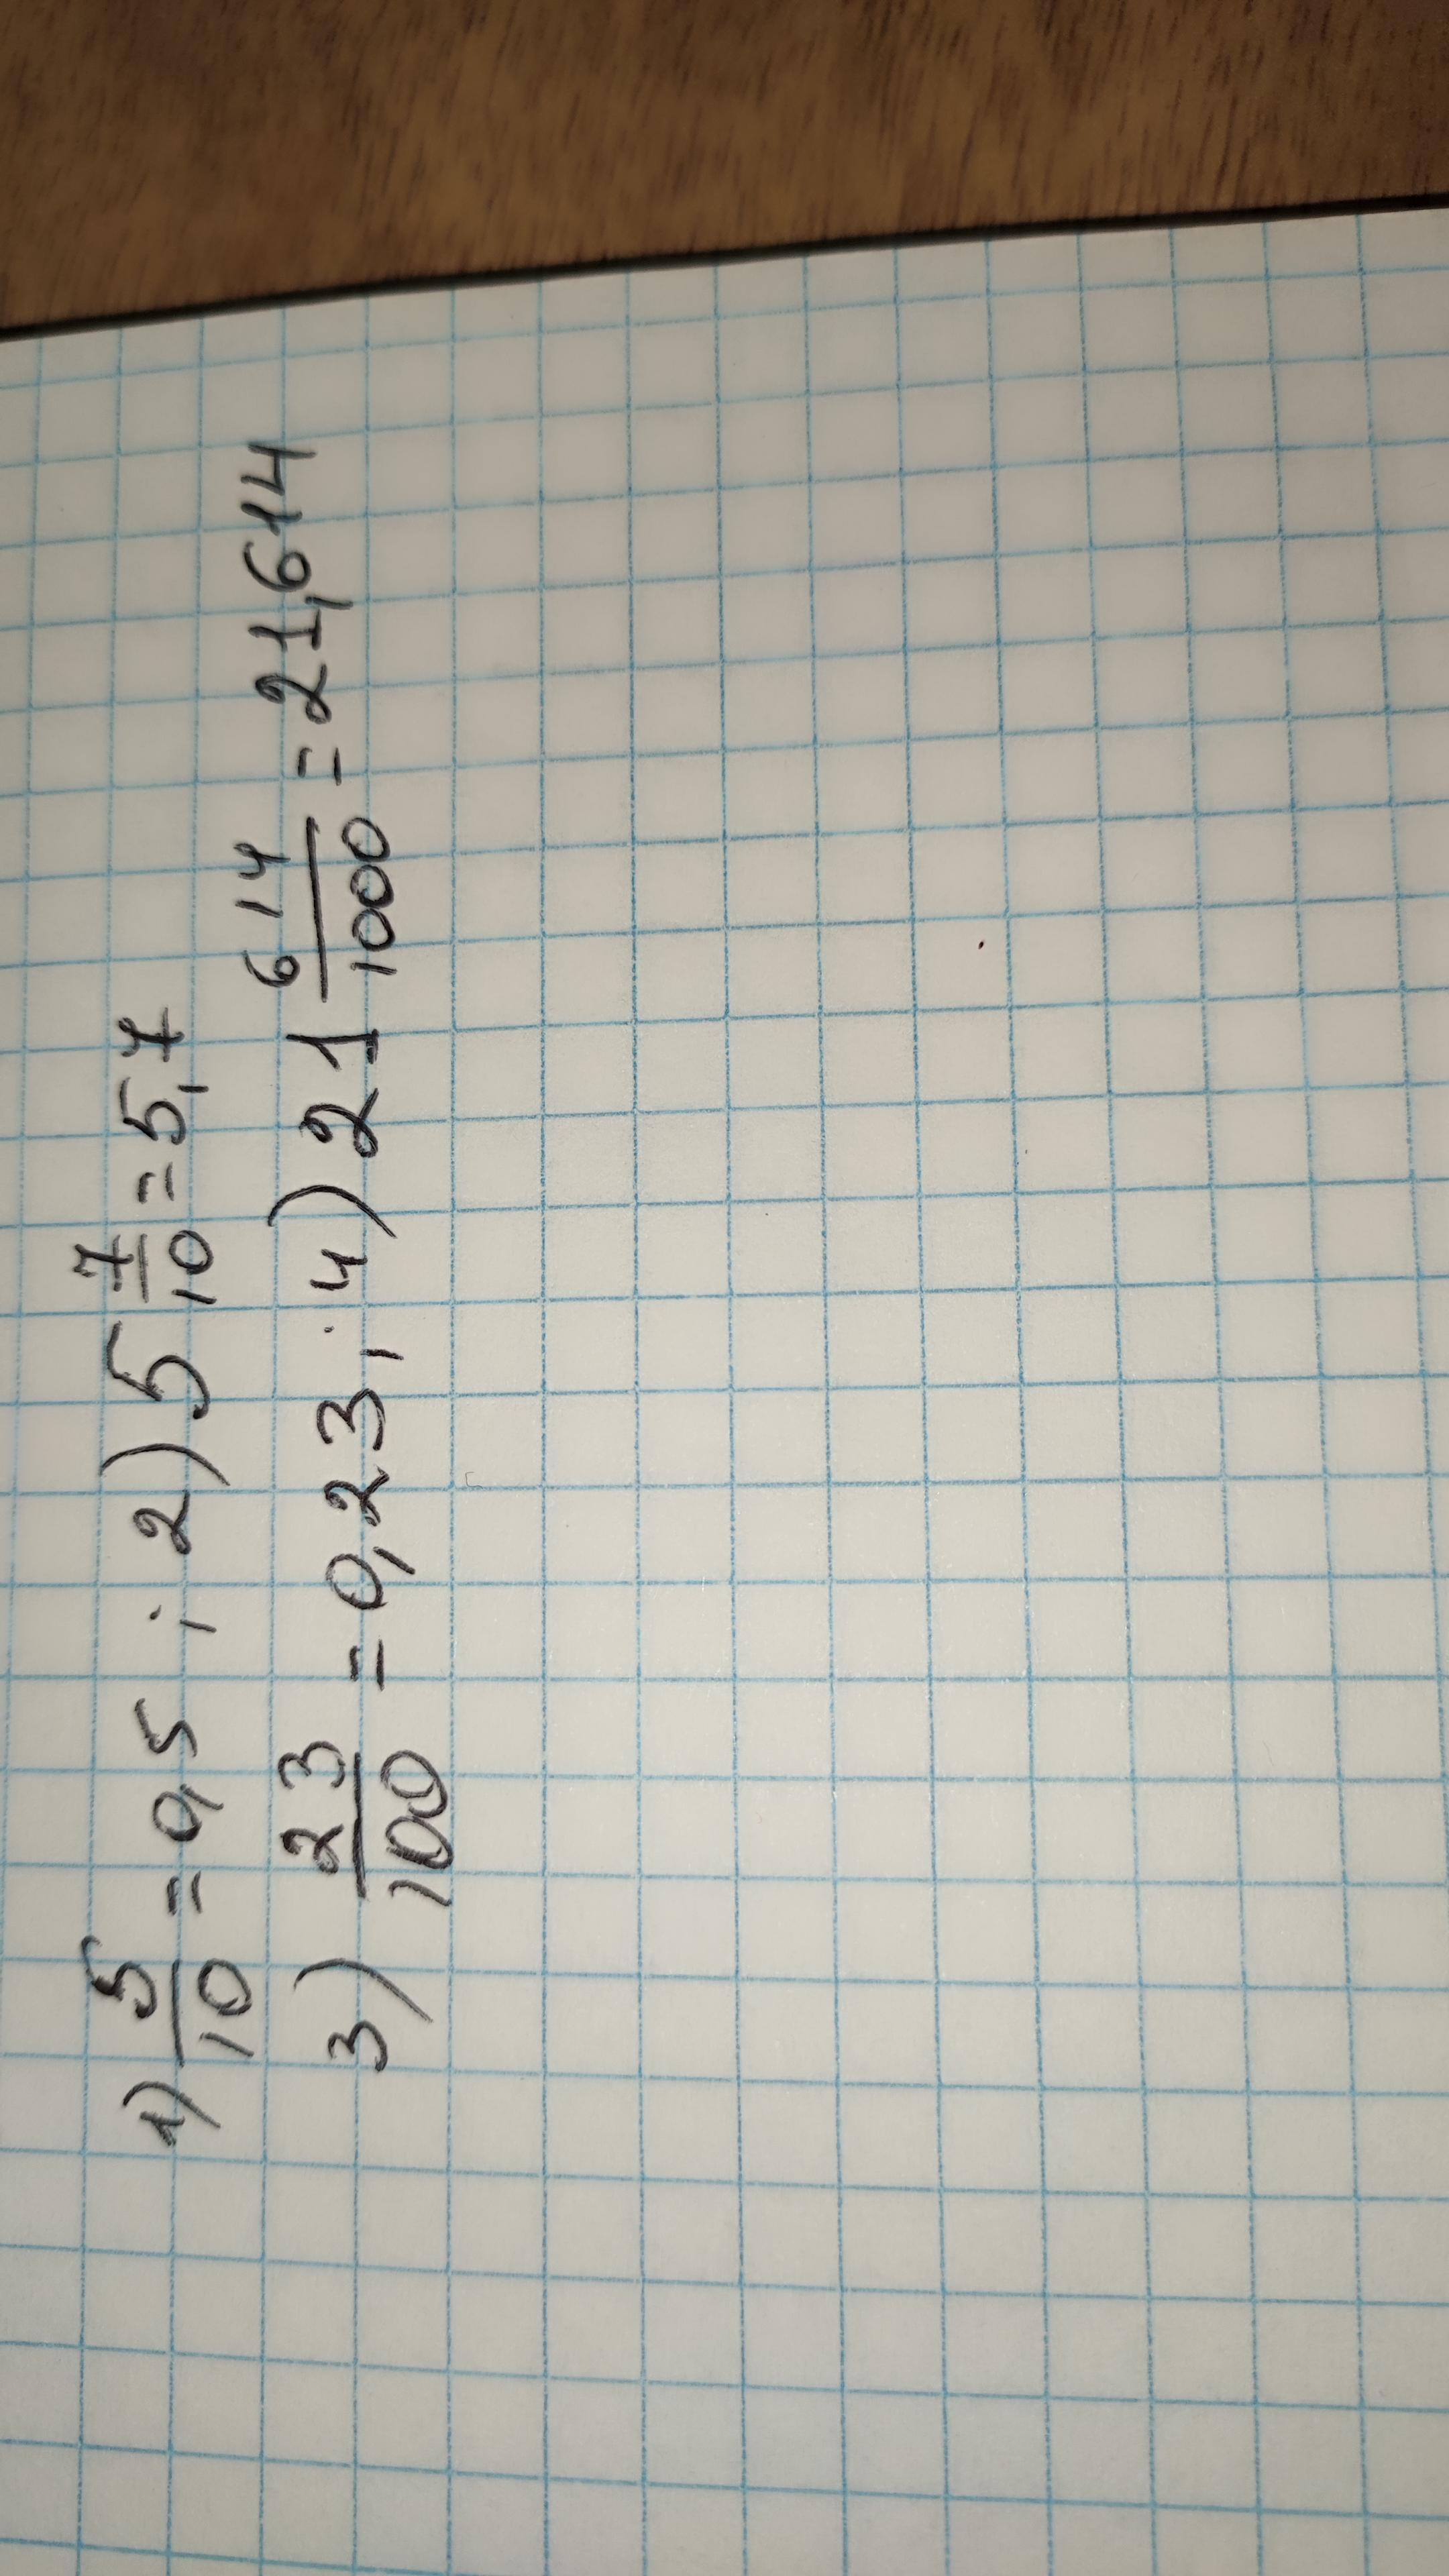 1) 5/10 = 0,5 ; 2) 5 7/10 = 5,7
3) 23/100 = 0,23 ; 4) 21 614/1000 = 21,614